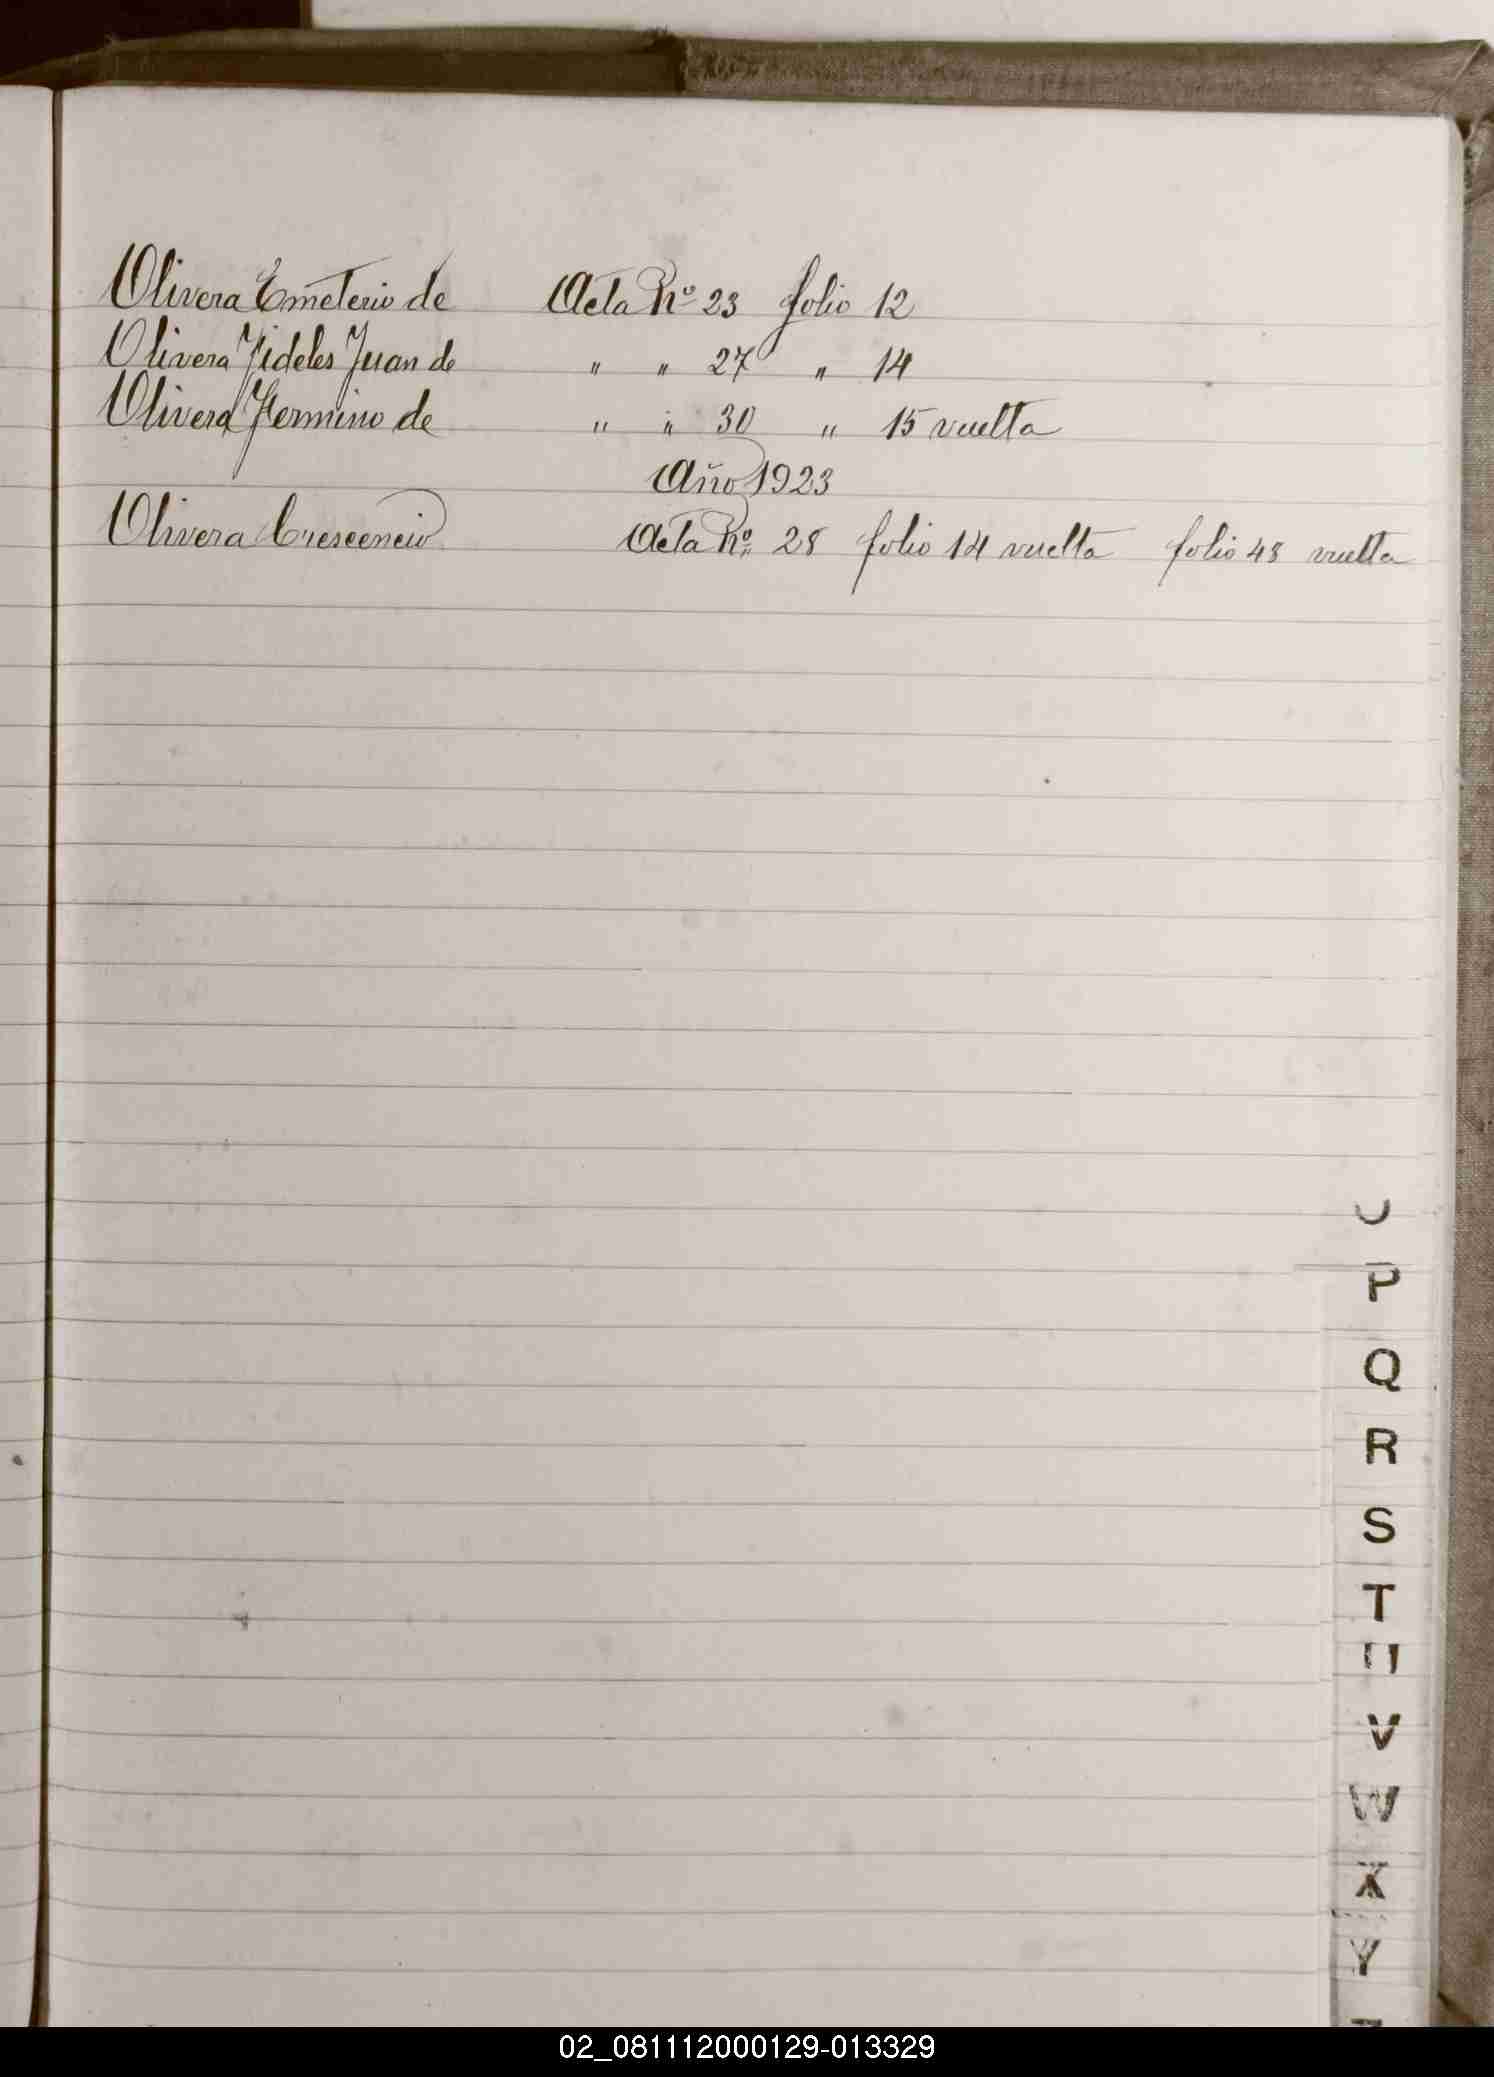 Olivera Emeterio de Acta Nº 23 folio 12
Olivera Fideles Juan de " " 27 " 14
Olivera Fermino de " " 30 " 15 vuelta
Año 1923
Olivera Crescencio Acta Nº 28 folio 14 vuelta folio 48 vuelta
O
P
Q
R
S
T
U
V
W
X
Y
02_081112000129-013329